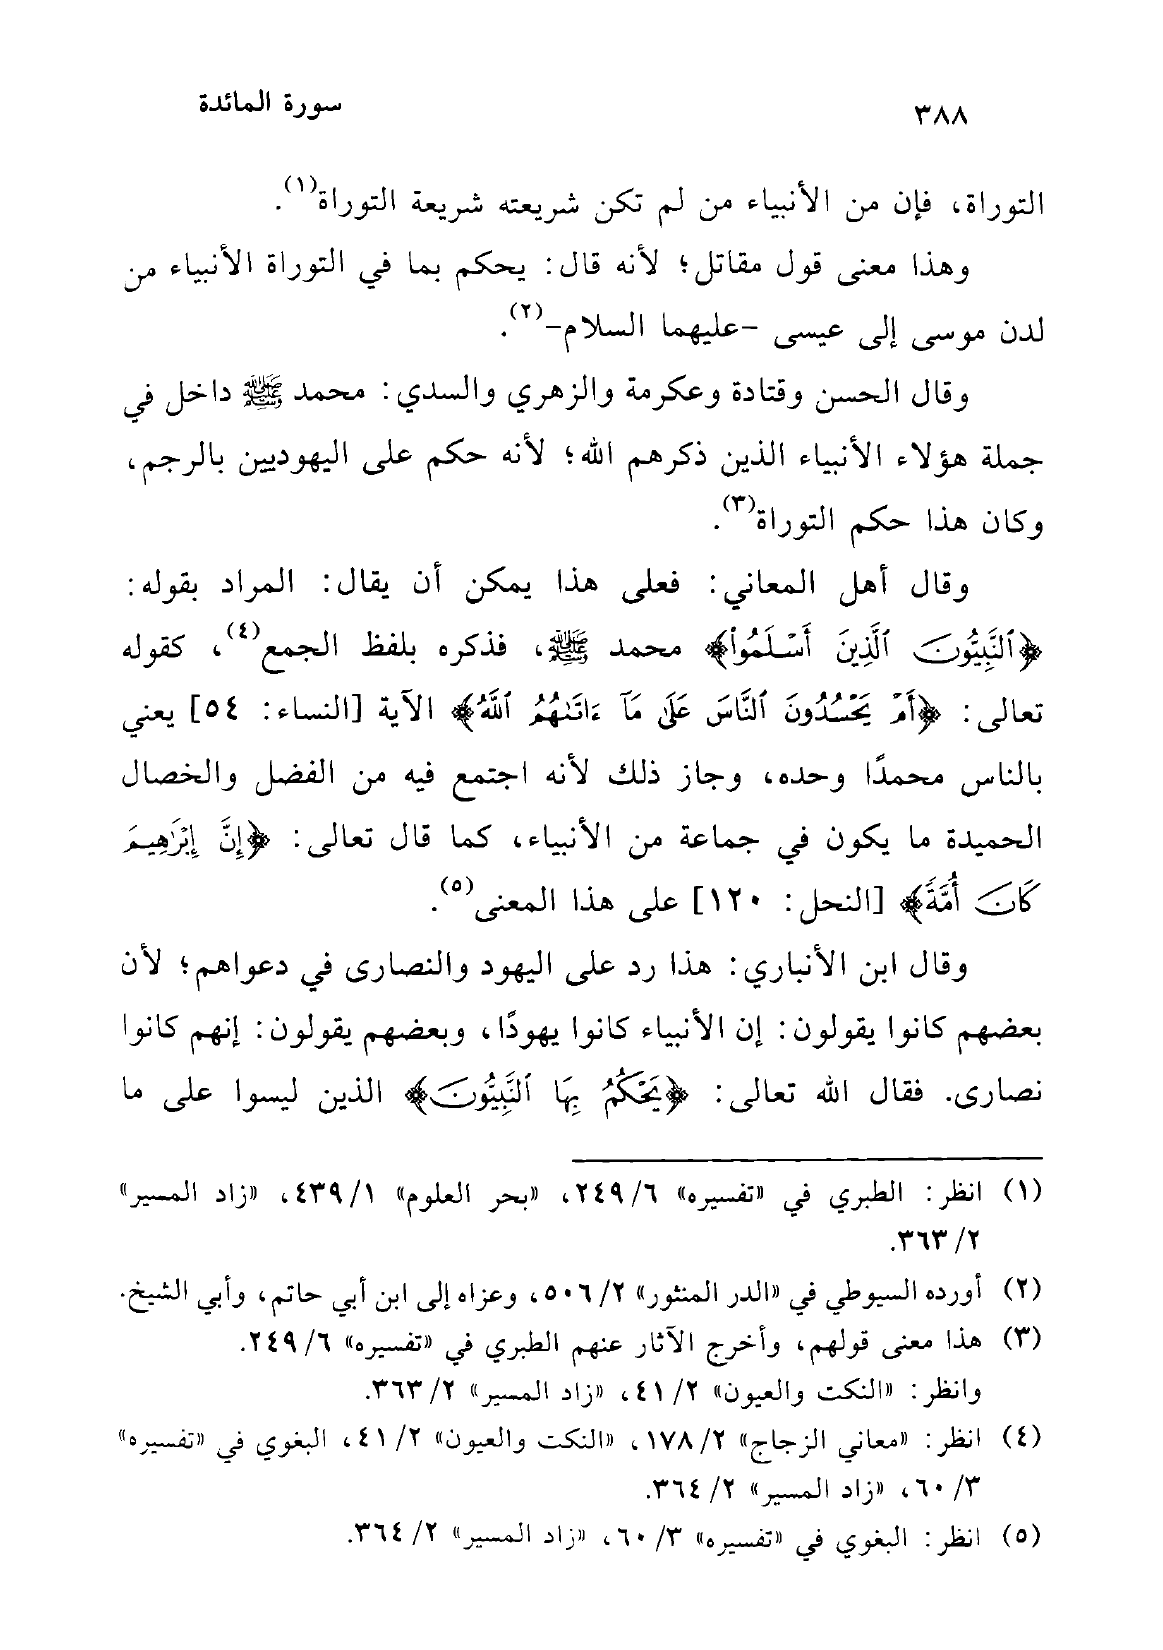 ٣٨٨ سورة المائدة
التوراة، فإن من الأنبياء من لم تكن شريعته شريعة التوراة(١).
وهذا معنى قول مقاتل؛ لأنه قال: يحكم بما في التوراة الأنبياء من
لدن موسى إلى عيسى -عليهما السلام-(٢).
وقال الحسن وقتادة وعكرمة والزهري والسدي: محمد ﷺ داخل في
جملة هؤلاء الأنبياء الذين ذكرهم الله؛ لأنه حكم على اليهوديين بالرجم،
وكان هذا حكم التوراة(٣).
وقال أهل المعاني: فعلى هذا يمكن أن يقال: المراد بقوله:
﴿ٱلنَّبِيُّونَ ٱلَّذِينَ أَسْلَمُوا۟﴾ محمد ﷺ، فذكره بلفظ الجمع(٤)، كقوله
تعالى: ﴿أَمْ يَحْسُدُونَ ٱلنَّاسَ عَلَىٰ مَآ ءَاتَىٰهُمُ ٱللَّهُ﴾ الآية [النساء: ٥٤] يعني
بالناس محمدًا وحده، وجاز ذلك لأنه اجتمع فيه من الفضل والخصال
الحميدة ما يكون في جماعة من الأنبياء، كما قال تعالى: ﴿إِنَّ إِبْرَٰهِيمَ
كَانَ أُمَّةً﴾ [النحل: ١٢٠] على هذا المعنى(٥).
وقال ابن الأنباري: هذا رد على اليهود والنصارى في دعواهم؛ لأن
بعضهم كانوا يقولون: إن الأنبياء كانوا يهودًا، وبعضهم يقولون: إنهم كانوا
نصارى. فقال الله تعالى: ﴿يَحْكُمُ بِهَا ٱلنَّبِيُّونَ﴾ الذين ليسوا على ما
(١) انظر: الطبري في «تفسيره» ٦/ ٢٤٩، «بحر العلوم» ١/ ٤٣٩، «زاد المسير»
٢/ ٣٦٣.
(٢) أورده السيوطي في «الدر المنثور» ٢/ ٥٠٦، وعزاه إلى ابن أبي حاتم، وأبي الشيخ.
(٣) هذا معنى قولهم، وأخرج الآثار عنهم الطبري في «تفسيره» ٦/ ٢٤٩.
وانظر: «النكت والعيون» ٢/ ٤١، «زاد المسير» ٢/ ٣٦٣.
(٤) انظر: «معاني الزجاج» ٢/ ١٧٨، «النكت والعيون» ٢/ ٤١، البغوي في «تفسيره»
٣/ ٦٠، «زاد المسير» ٢/ ٣٦٤.
(٥) انظر: البغوي في «تفسيره» ٣/ ٦٠، «زاد المسير» ٢/ ٣٦٤.